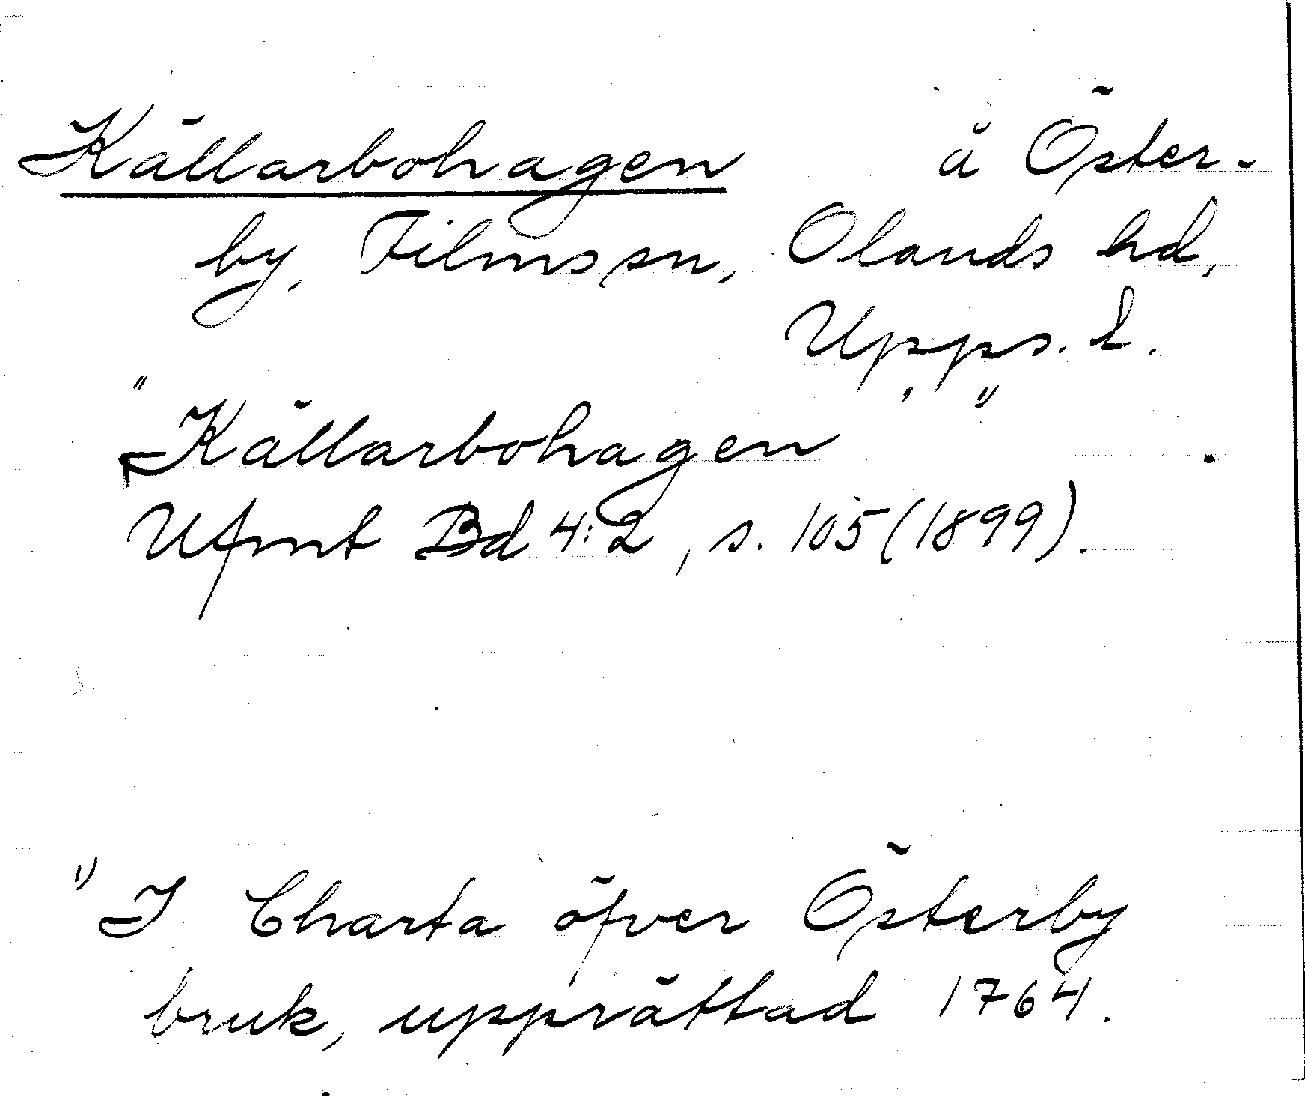 Källarbohagen å Öster-
by, Films sn, Olands hd,
Upps. l.
"Källarbohagen"
Ufmt Bd 4:2, s. 105 (1899).
1) I Charta öfver Österby
bruk, upprättad 1764.